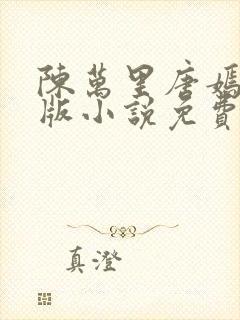 陳萬里唐嫣
版小說免費
真澄